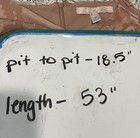 pit to pit - 18.5"
length - 53"